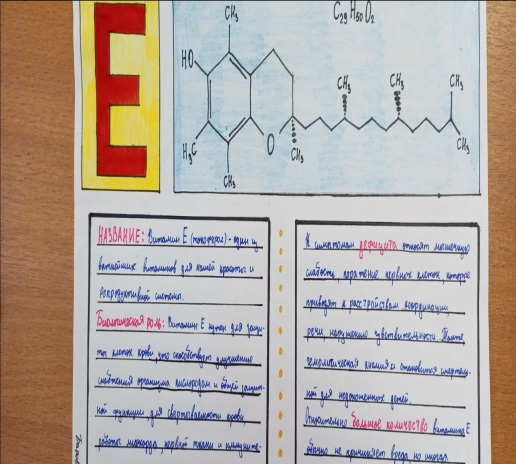 E
C29H50O2
CH3
HO
H3C
CH3
O
CH3
CH3
CH3
CH3
CH3
НАЗВАНИЕ: Витамин Е (токоферол) - один из
важнейших витаминов для нашей красоты и
репродуктивной системы.
Биологическая роль: Витамин Е нужен для защи-
ты клеток крови, что способствует улучшению
снабжения организма кислородом и общей защит-
ной функции для свертываемости крови,
работы миокарда, нервной ткани и иммуните-
К симптомам дефицита относят мышечную
слабость, поражение нервных клеток, которые
приводят к расстройствам координации,
речи, нарушению чувствительности. Также
гемолитическая анемия и становится смертель-
ной для недоношенных детей.
Относительно большое количество витамина Е
обычно не причиняет вреда, но иногда